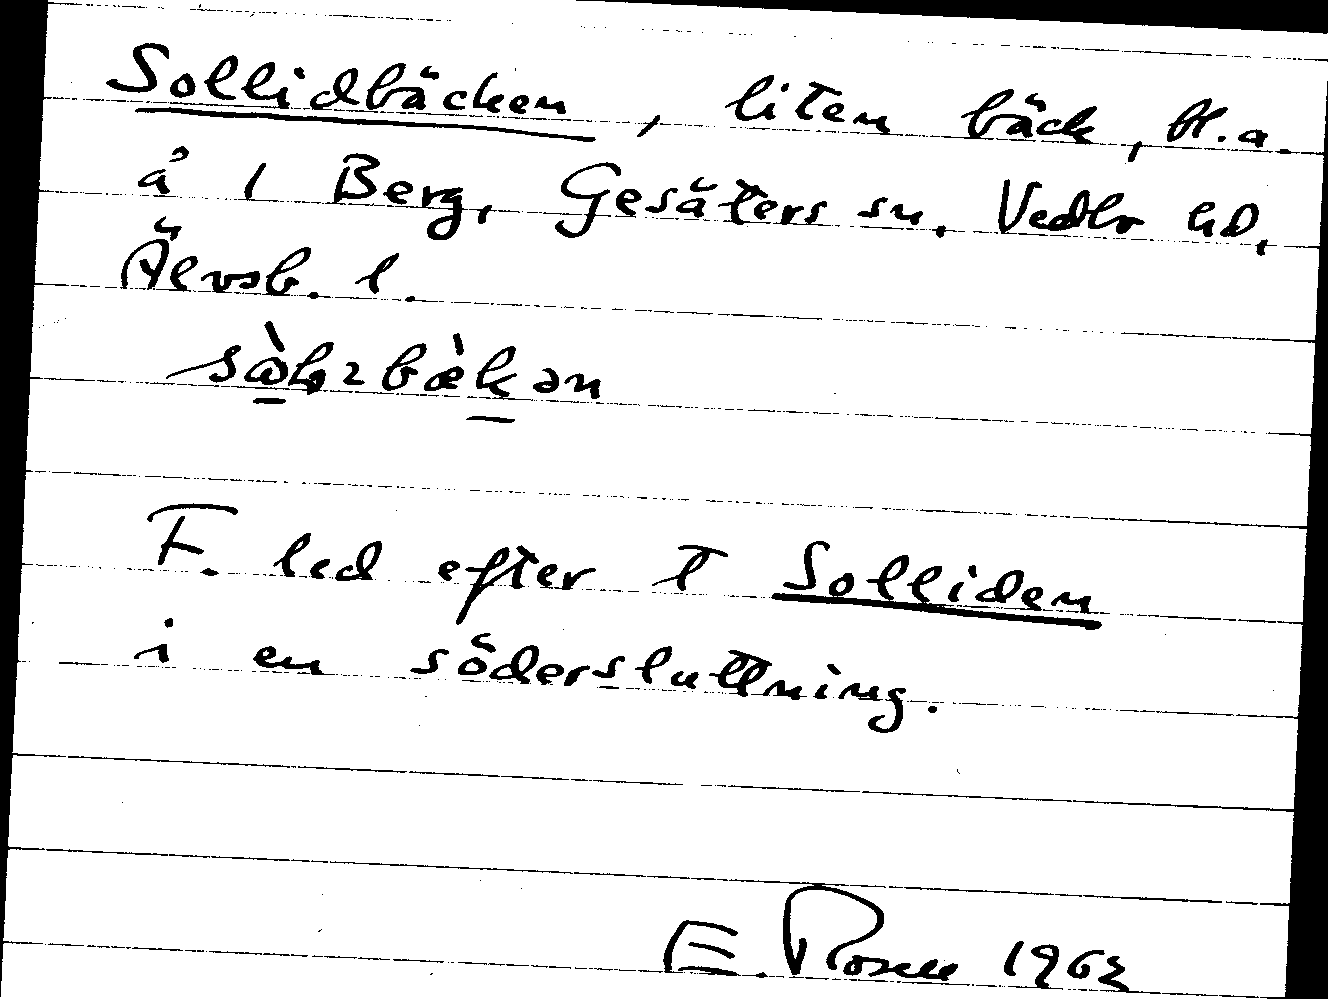 Sollidbäcken, liten bäck, bl.a.
å 1 Berg, Gesäters sn. Vedbo hd,
Älvsb. l.
F. led efter T Solliden
i en södersluttning.
E. Rosell 1962